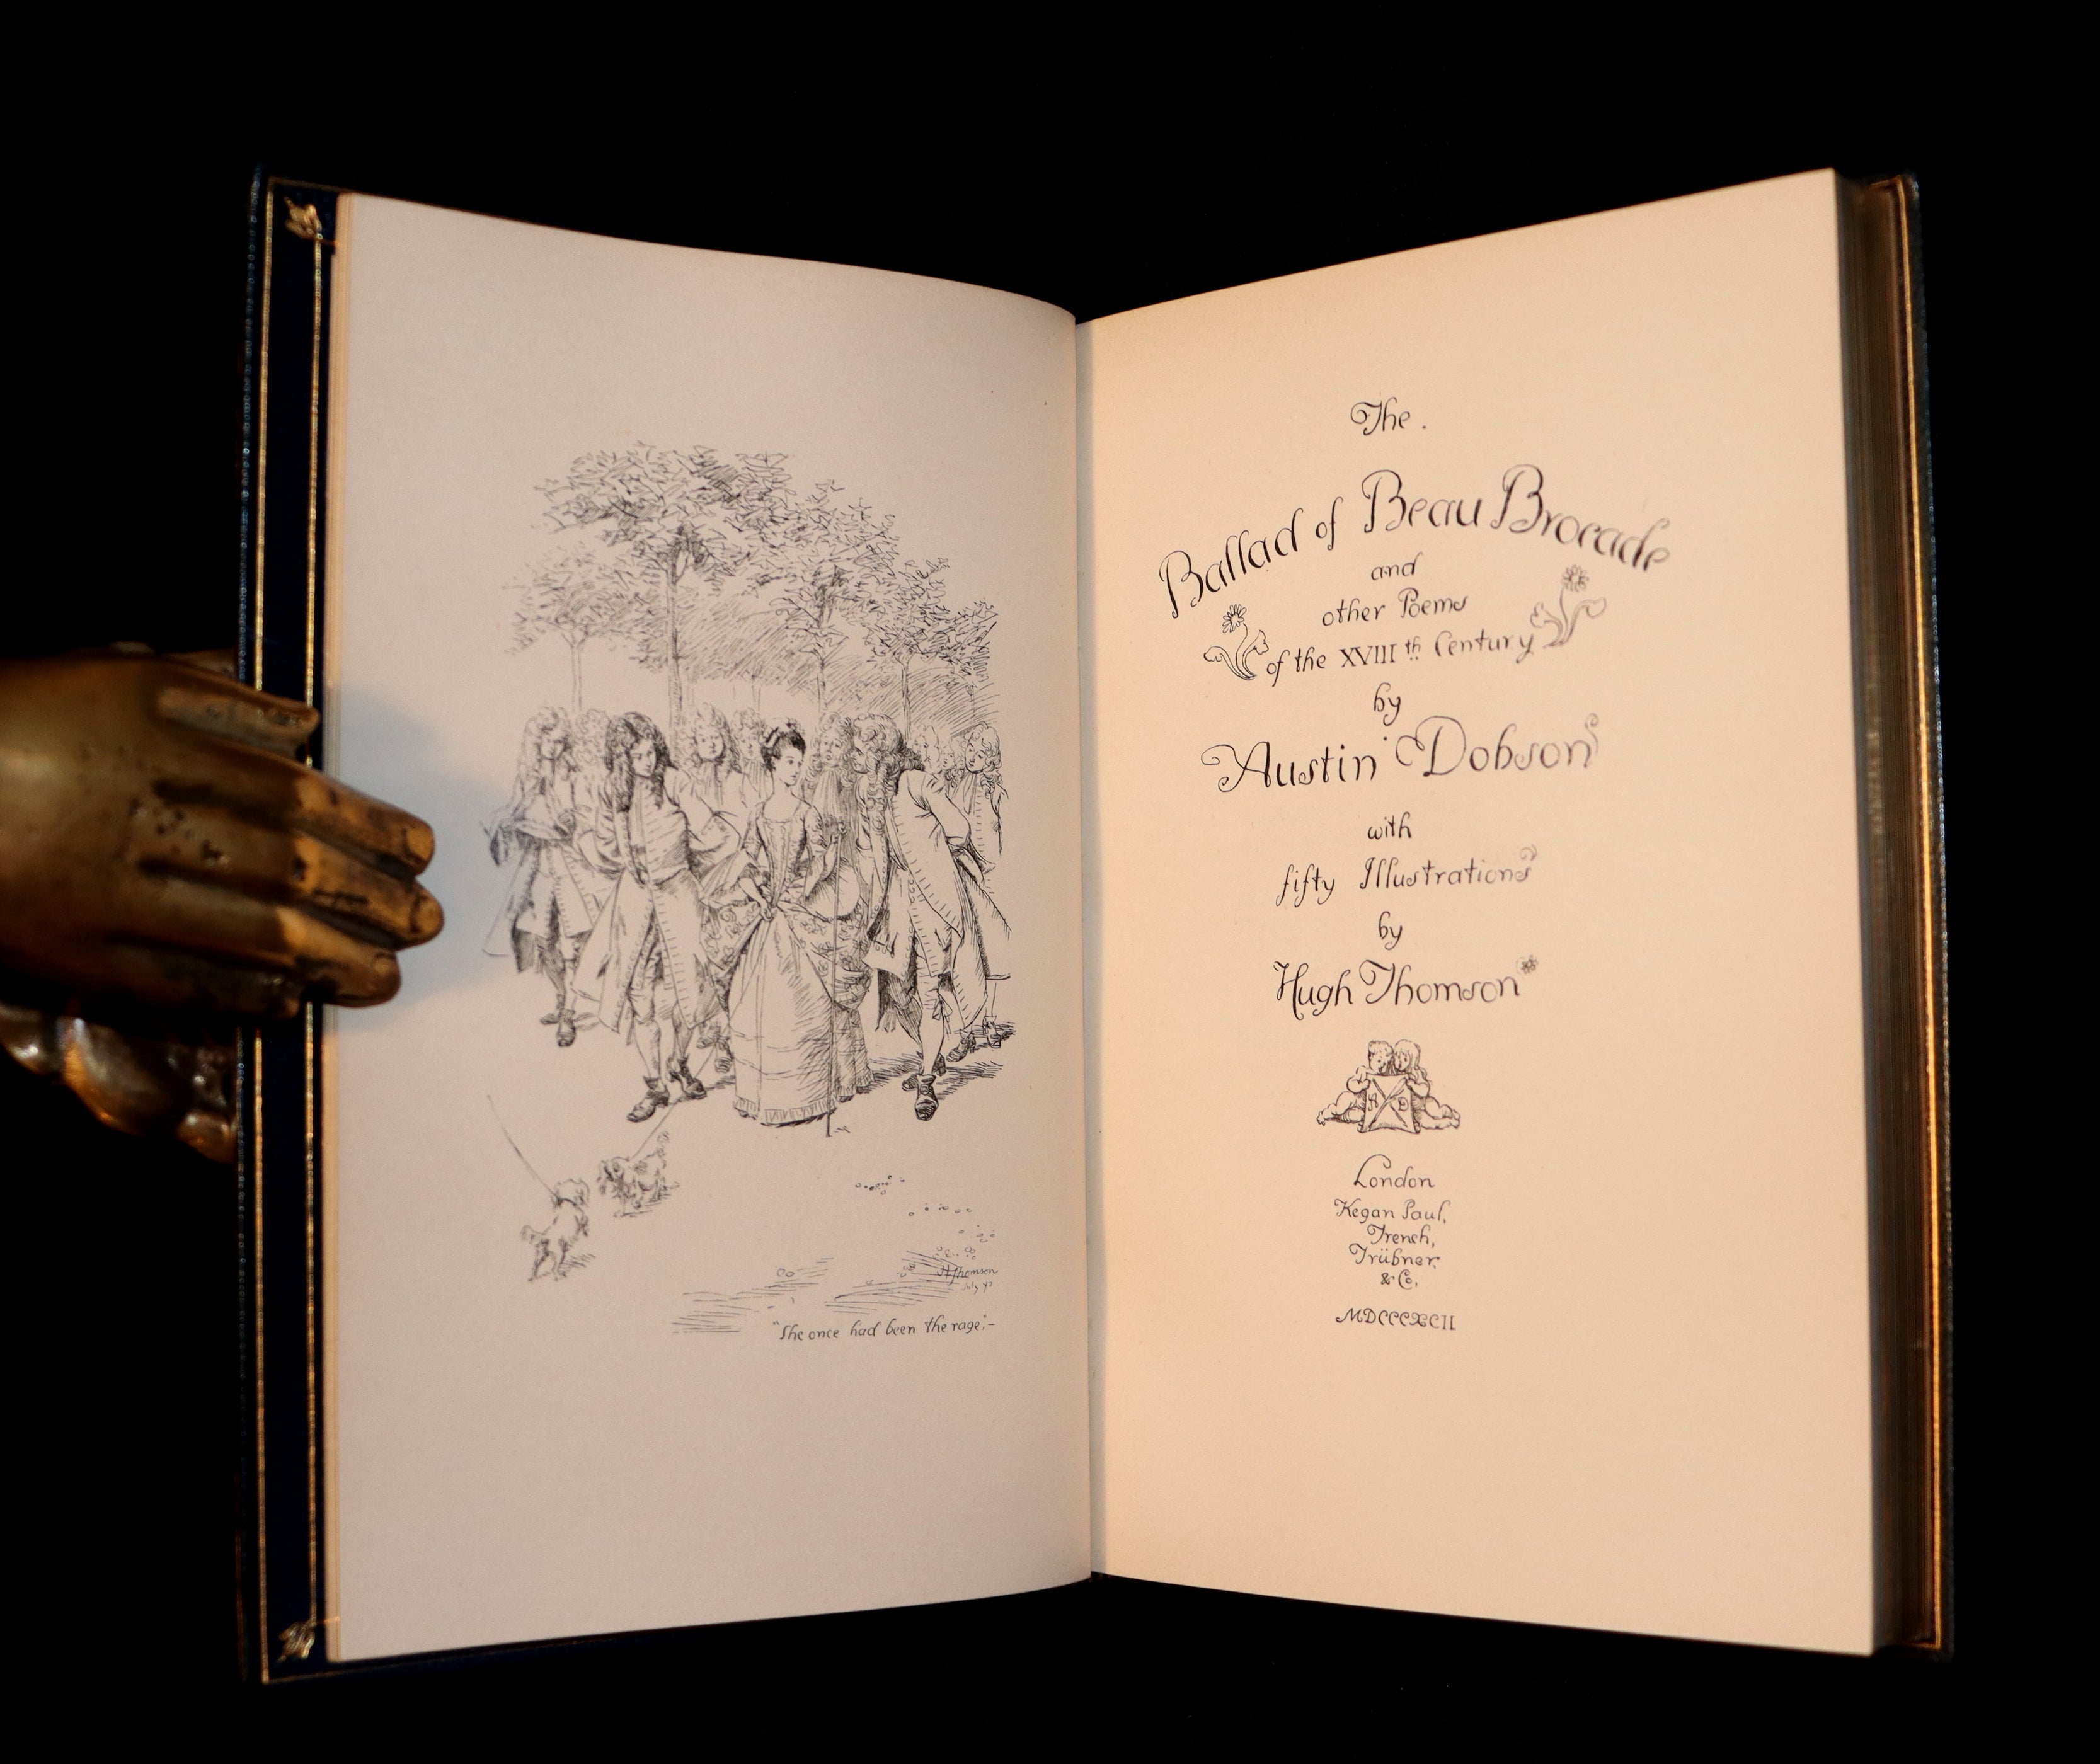 HThomson
July 92
"She once had been the rage";—
The.
Ballad of Beau Brocade
and
other Poems
of the XVIIIth Century
by
Austin Dobson
with
fifty Illustrations
by
Hugh Thomson
A D
London
Kegan Paul,
Trench,
Trübner,
& Co.
MDCCCXCII